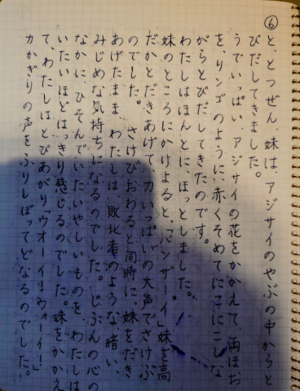 ⑥
と、とつぜん、妹は、アジサイのやぶの中からと
びだしてきました。
うでいっぱい、アジサイの花をかかえて、両ほお
を、リンゴのように、赤くそめてにこにこしな
がらとびだしてきたのです。
わたしはほんとに、ほっとしました。
妹のところにかけよると、「バンザーイ」妹を高
だかとだきあげて、力いっぱいの大声でさけぶ
のでした。 さけびおわると同時に、妹をだき
あげたまま、わたしは、敗北者のような、暗い、
みじめな気持ちになるのでした。じぶんの心の
なかにひそんでいたいやしいものを、わたしは
いたいほどはっきり感じるのでした。妹をかかえ
て、わたしはとびあがり「ウオーイ!ウォーイ!」
力かぎりの声をふりしぼってどなるのでした。